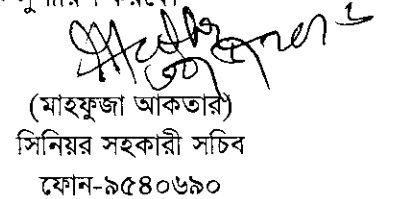 করবে।
(মাহফুজা আকতার)
সিনিয়র সহকারী সচিব
ফোন-৯৫৪০৬৯০